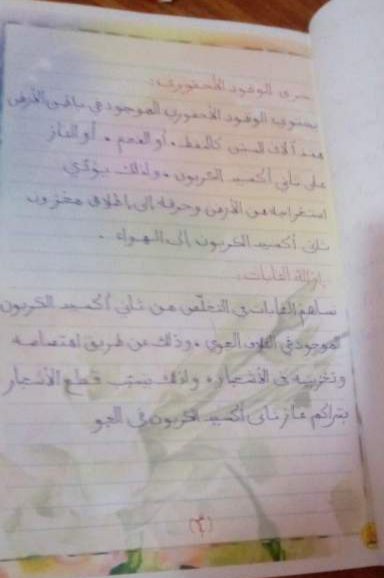 حرق الوقود الأحفوري:
يحتوي الوقود الأحفوري الموجود في باطن الأرض
منذ آلاف السنين كالنفط، أو الفحم، أو الغاز
على ثاني أكسيد الكربون، ولذلك يؤدي
استخراجه من الأرض وحرقه إلى إطلاق مخزون
ثاني أكسيد الكربون إلى الهواء.
إزالة الغابات:
تساهم الغابات في التخلّص من ثاني أكسيد الكربون
الموجود في الغلاف الجوي، وذلك عن طريق امتصاصه
وتخزينه في الأشجار، ولذلك يتسبّب قطع الأشجار
بتراكم غاز ثاني أكسيد الكربون في الجو
(٣)